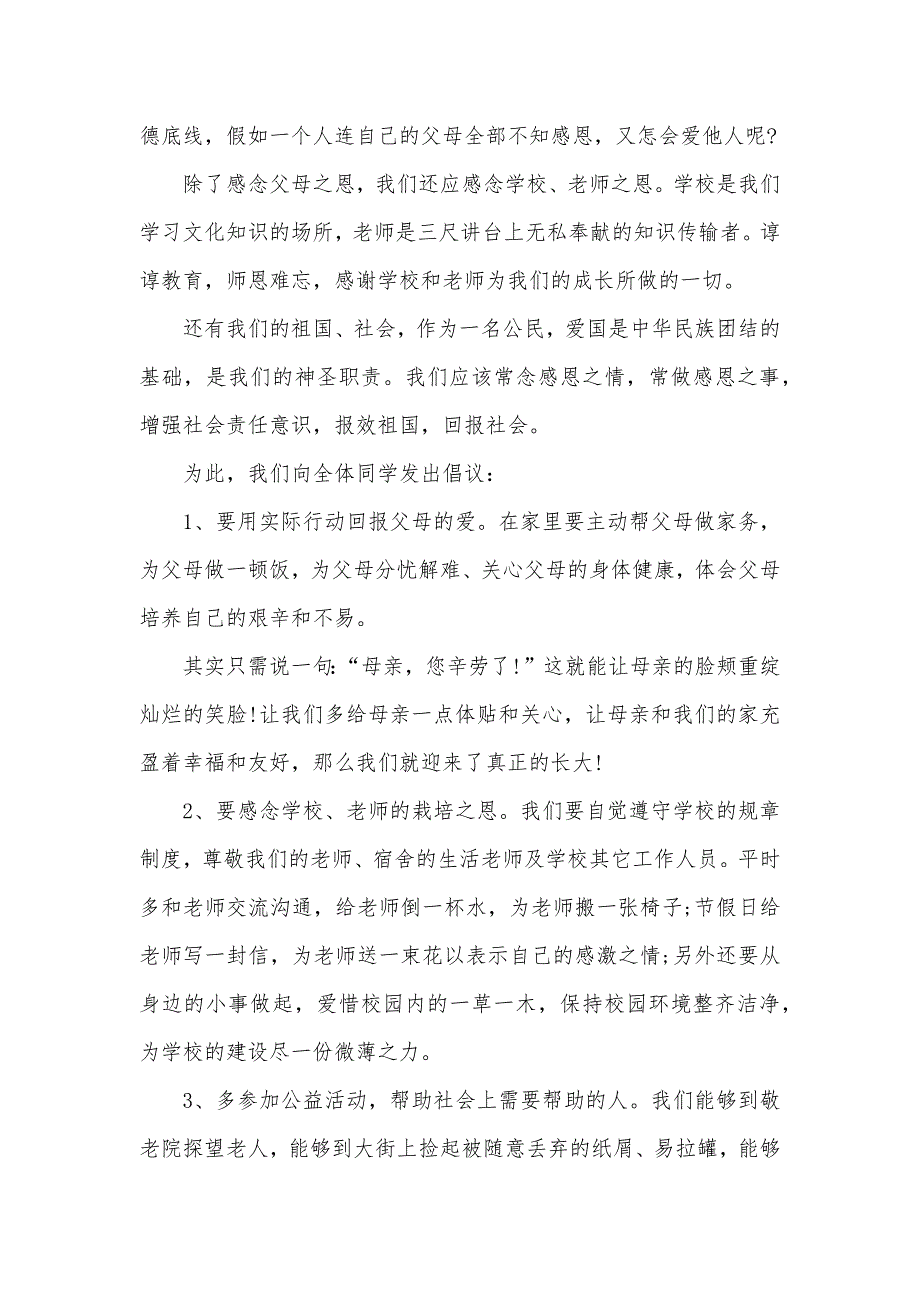 德底线，假如一个人连自己的父母全部不知感恩，又怎会爱他人呢?
除了感念父母之恩，我们还应感念学校、老师之恩。学校是我们
学习文化知识的场所，老师是三尺讲台上无私奉献的知识传输者。谆
谆教育，师恩难忘，感谢学校和老师为我们的成长所做的一切。
还有我们的祖国、社会，作为一名公民，爱国是中华民族团结的
基础，是我们的神圣职责。我们应该常念感恩之情，常做感恩之事，
增强社会责任意识，报效祖国，回报社会。
为此，我们向全体同学发出倡议：
1、要用实际行动回报父母的爱。在家里要主动帮父母做家务，
为父母做一顿饭，为父母分忧解难、关心父母的身体健康，体会父母
培养自己的艰辛和不易。
其实只需说一句：“母亲，您辛劳了!”这就能让母亲的脸颊重绽
灿烂的笑脸!让我们多给母亲一点体贴和关心，让母亲和我们的家充
盈着幸福和友好，那么我们就迎来了真正的长大!
2、要感念学校、老师的栽培之恩。我们要自觉遵守学校的规章
制度，尊敬我们的老师、宿舍的生活老师及学校其它工作人员。平时
多和老师交流沟通，给老师倒一杯水，为老师搬一张椅子;节假日给
老师写一封信，为老师送一束花以表示自己的感激之情;另外还要从
身边的小事做起，爱惜校园内的一草一木，保持校园环境整齐洁净，
为学校的建设尽一份微薄之力。
3、多参加公益活动，帮助社会上需要帮助的人。我们能够到敬
老院探望老人，能够到大街上捡起被随意丢弃的纸屑、易拉罐，能够